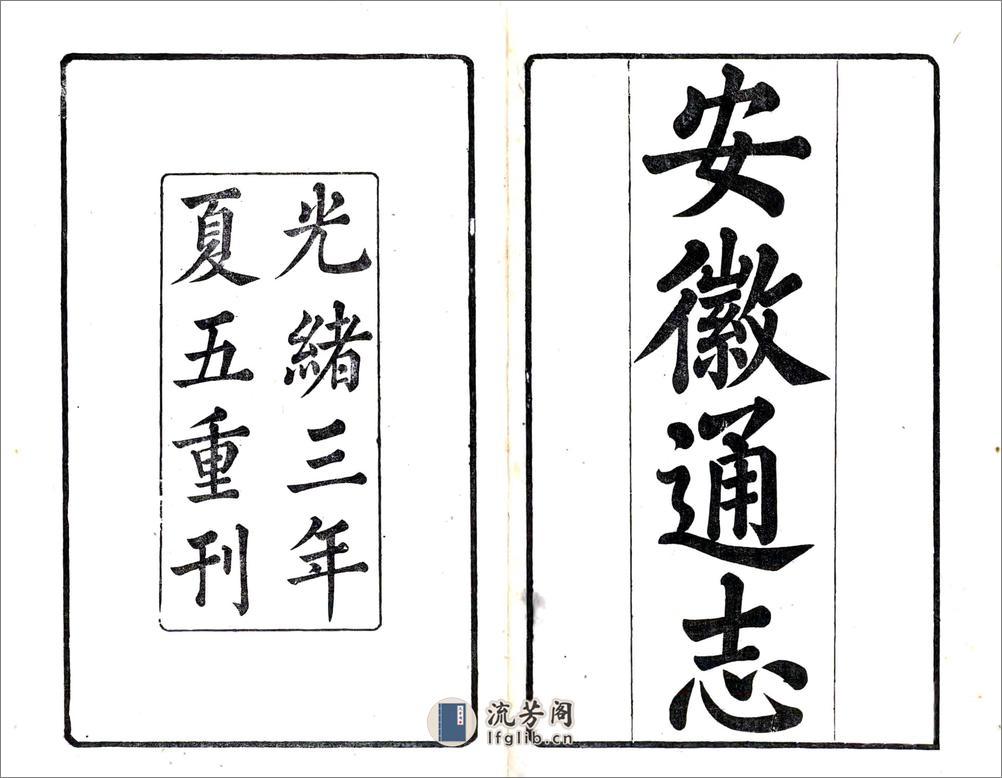 安徽通志
光緒三年
夏五重刊
流芳阁
lfglib.cn